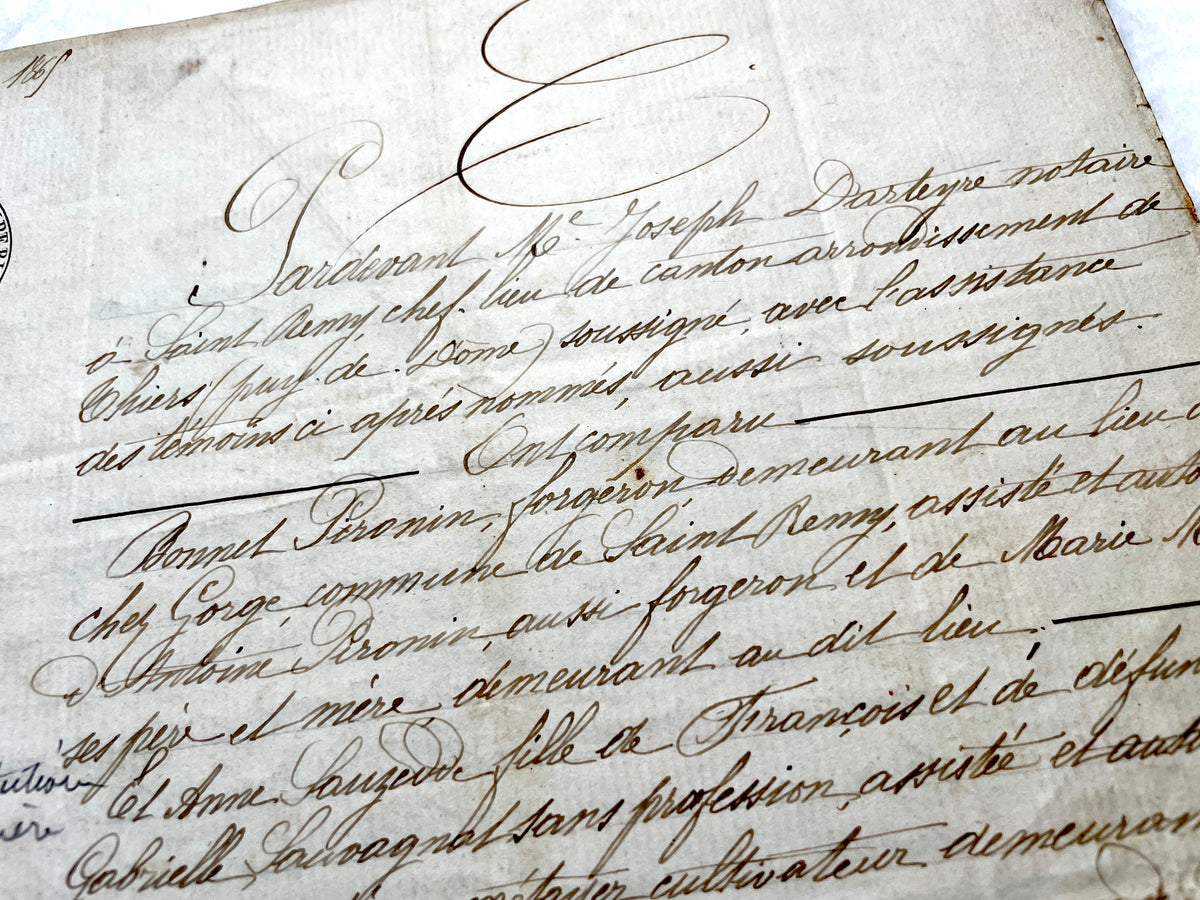 1865
E
Pardevant Me Joseph Darteyre notaire
à Saint Remy, chef-lieu de canton arrondissement de
Thiers (puy-de-Dôme) soussigné, avec l'assistance
des témoins ci après nommés, aussi soussignés.
Ont comparu
Bonnet Pironin, forgeron, demeurant au lieu
chez Gorge, commune de Saint Remy, assisté et auto
d'Antoine Pironin, aussi forgeron et de Marie M
ses père et mère demeurant au dit lieu.
Et Anne Sauzedde fille de François et de défun
Gabrielle Sauvagnat sans profession, assistée et auto
métayer cultivateur demeuran